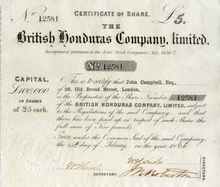 No 12581 CERTIFICATE OF SHARE. £5.
THE
British Honduras Company, limited.
Incorporated pursuant to the Joint Stock Companies' Act
No 12581
CAPITAL
£100,000
IN SHARES
of £5 each.
This is to certify that John Campbell, Esq.,
Old Broad Street, London,
is the Proprietor of the Share Number 12581
of the BRITISH HONDURAS COMPANY, LIMITED, subject
to the Regulations of the said Company; and that
there has been paid up in respect of such Share the
sum of
Given under the Common Seal of the said Company,
the day of February, in the year